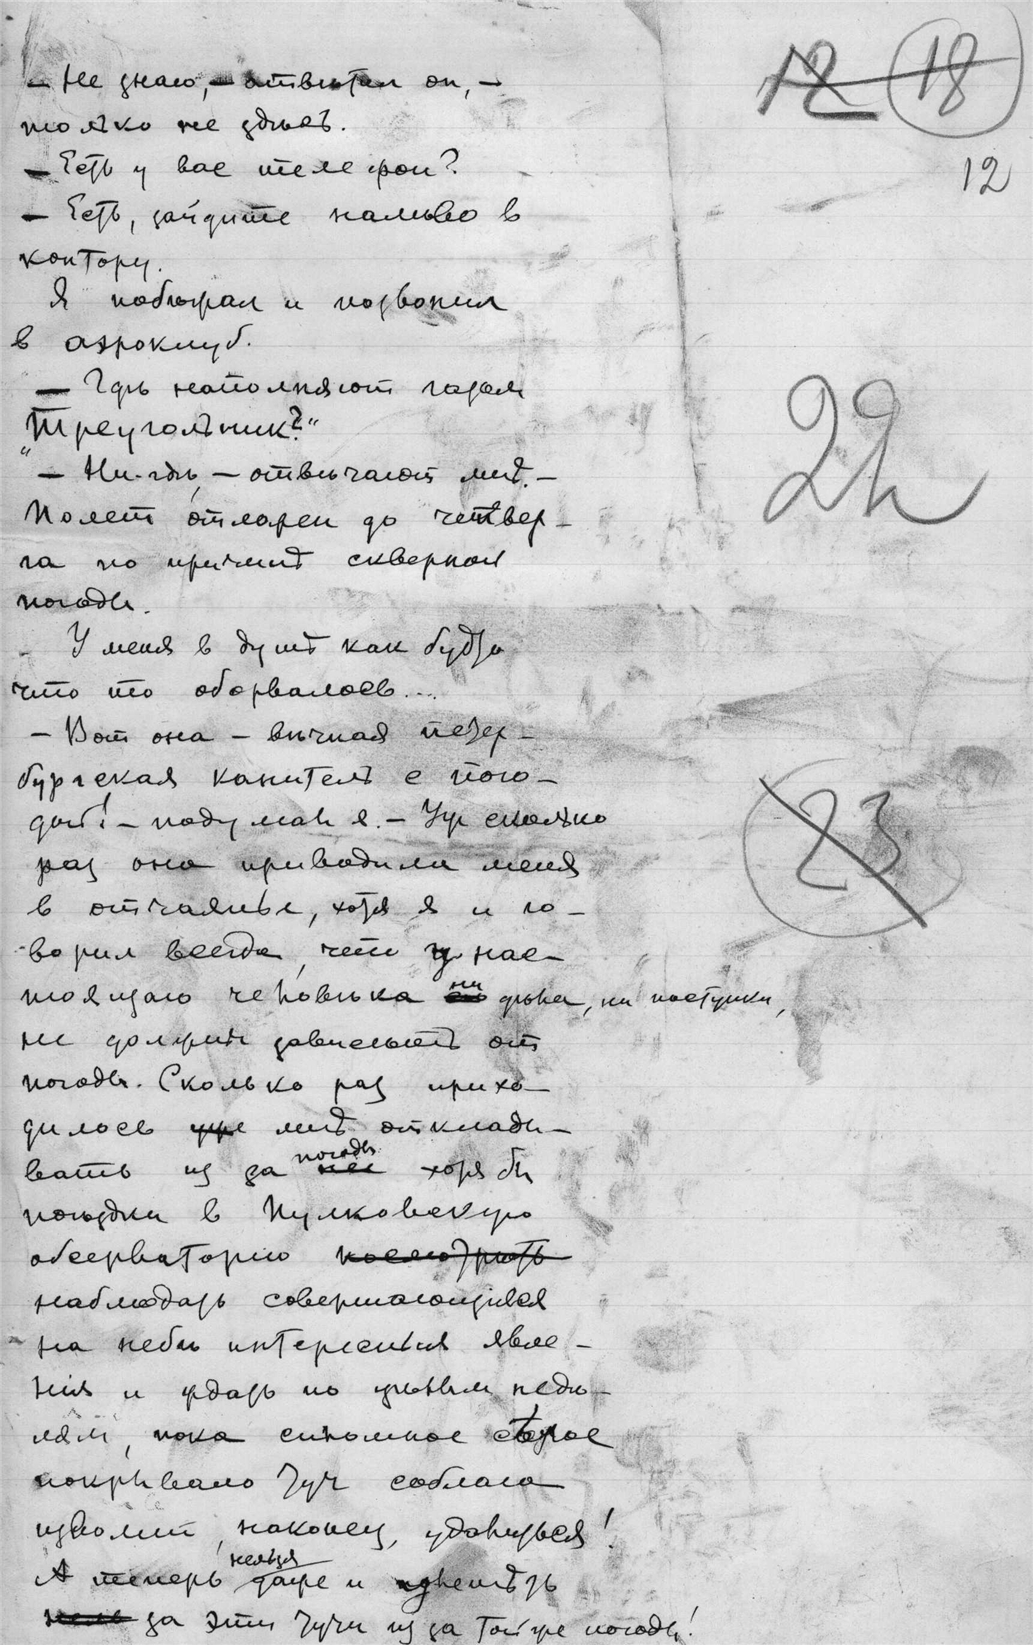 — Не знаю, — отвѣтил он, —
только не здѣсь.
— Есть у вас телефон?
— Есть, зайдите налѣво в
контору.
Я побѣжал и позвонил
в аэроклуб.
— Гдѣ наполняют газом
„Треугольник?“
— Ни-гдѣ, — отвѣчают мнѣ. —
Полет отложен до четвер-
га по причинѣ скверной
погоды.
У меня в душѣ как будто
что то оборвалось...
— Вот она — вѣчная петер-
бургская канитель с пого-
дой! — подумал я. — Уж сколько
раз она приводила меня
в отчаянье, хотя я и го-
ворил всегда, что у нас-
тоящаго человѣка ни дѣла, ни поступки,
не должны зависѣть от
погоды. Сколько раз прихо-
дилось уже мнѣ отклады-
вать из за погоды нее хотя бы
поѣздки в Пулковскую
обсерваторию посмотрѣть
наблюдать совершающіяся
на небѣ интересныя явле-
нія и ждать по цѣлым недѣ-
лям, пока сплошное сѣрое
покрывало туч соблаго
изволит, наконец, удалиться!
А теперь нельзя даже и поднеться
нель за эти тучи из за той же погоды!
12 18
12
22
23